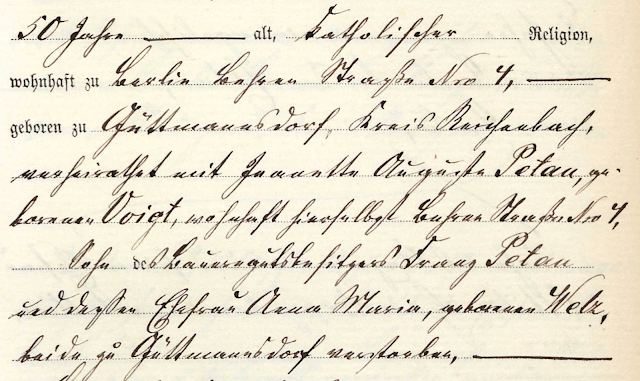 50 Jahre alt, katholischer Religion,
wohnhaft zu Berlin Behren Straße Nro 4,
geboren zu Güttmannsdorf, Kreis Reichenbach,
verheirathet mit Jeanette Auguste Petau, ge-
borenen Voigt, wohnhaft hierselbst Behren Straße Nro 4,
Sohn des Bauerngutsbesitzers Franz Petau
und dessen Ehefrau Anna Maria, geborenen Welz,
beide zu Güttmannsdorf verstorben,